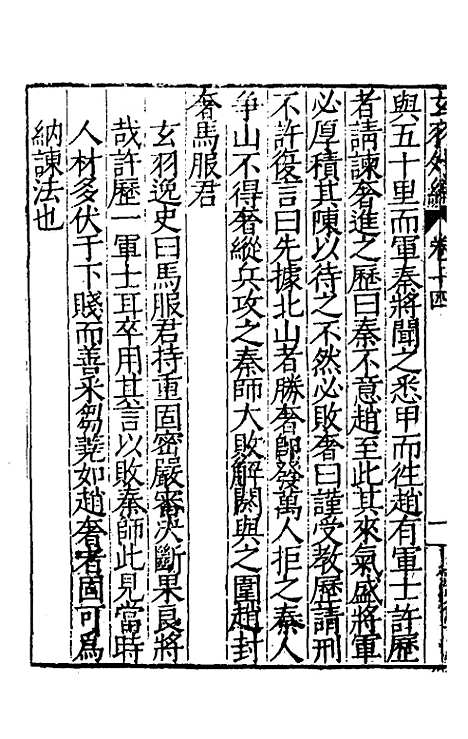 玄羽外編 卷十四 一
與五十里而軍秦將聞之悉甲而往趙有軍士許歷
者請諫奢進之歷曰秦不意趙至此其來氣盛將軍
必厚積其陳以待之不然必敗奢曰謹受教歷請刑
不許復言曰先據北山者勝奢即發萬人拒之秦人
爭山不得奢縱兵攻之秦師大敗解閼與之圍趙封
奢馬服君
玄羽逸史曰馬服君持重固密嚴審決斷果良將
哉許歷一軍士耳卒用其言以敗秦師此見當時
人材多伏于下賤而善采芻蕘如趙奢者固可爲
納諫法也